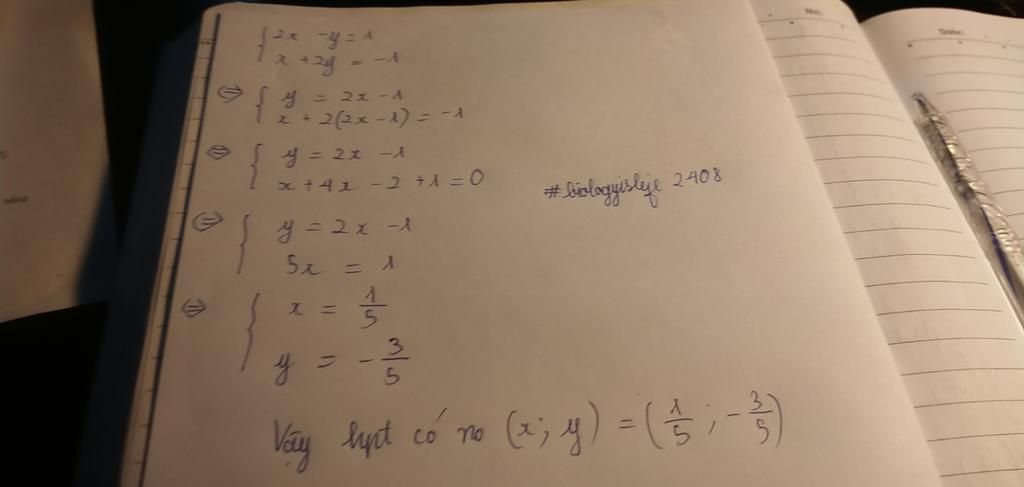 { 2x - y = 1
x + 2y = -1
⇔ { y = 2x - 1
x + 2(2x - 1) = -1
⇔ { y = 2x - 1
x + 4x - 2 + 1 = 0
#biologyislife 2408
⇔ { y = 2x - 1
5x = 1
⇔ { x = 1/5
y = -3/5
Vậy hpt có no (x; y) = (1/5; -3/5)
No:
Date: